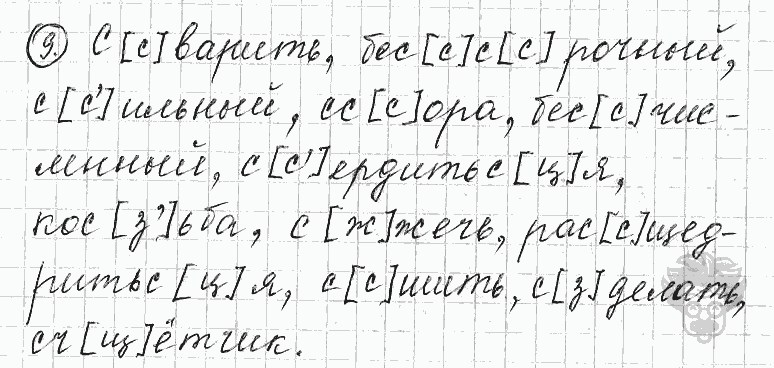 9. С [с] варить, бес [с] с [с] рочный,
с [с'] ильный, сс [с] ора, бес [с] чис-
ленный, с [с'] ердитьс [ц] я,
кос [з'] ьба, с [ж] жечь, рас [с] щед-
ритьс [ц] я, с [с] шить, с [з] делать,
сч [щ] ётчик.